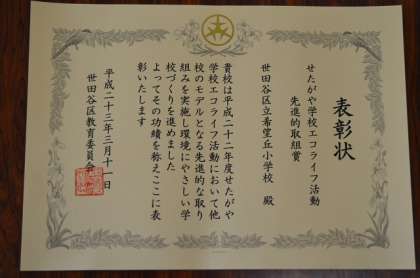 表彰状
せたがや学校エコライフ活動
先進的取組賞
世田谷区立希望丘小学校 殿
貴校は平成二十二年度せたがや
学校エコライフ活動において他
校のモデルとなる先進的な取り
組みを実施し環境にやさしい学
校づくりを進めました
よってその功績を称えここに表
彰いたします
平成二十三年三月十一日
世田谷区教育委員会